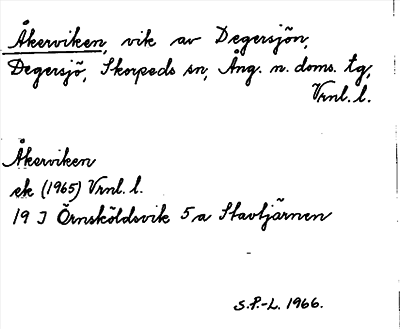 Åkerviken, vik av Degersjön,
Degersjö, Skorpeds sn, Ång. n. doms. tg,
Vrnl. l.
Åkerviken
ek (1965) Vrnl. l.
19 J Örnsköldsvik 5 a Stavtjärnen
S.P.-L. 1966.